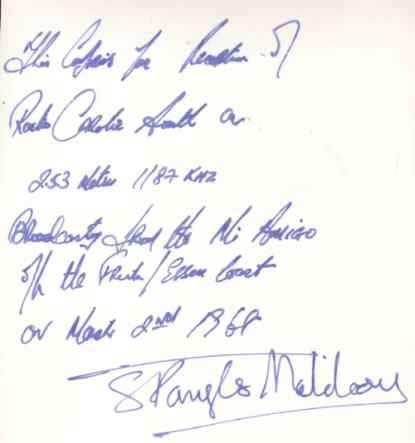 This Confirms for Reception of
Radio Caroline South on
253 Metres 1187 KHZ
Broadcasting from the Mi Amigo
off the Frinton/Essex Coast
on March 2nd 1968
Spangles Muldoon